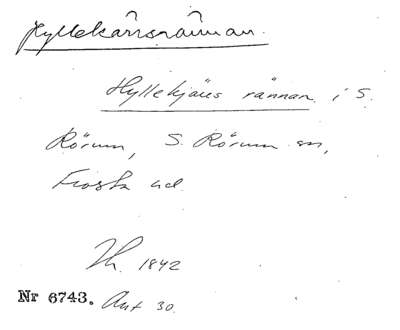 Hyllekärrsrännan.
Hyllekjärs rännan i S.
Rörum, S. Rörum sn,
Frosta hd.
Th. 1842
Nr 6743. Ant 30.